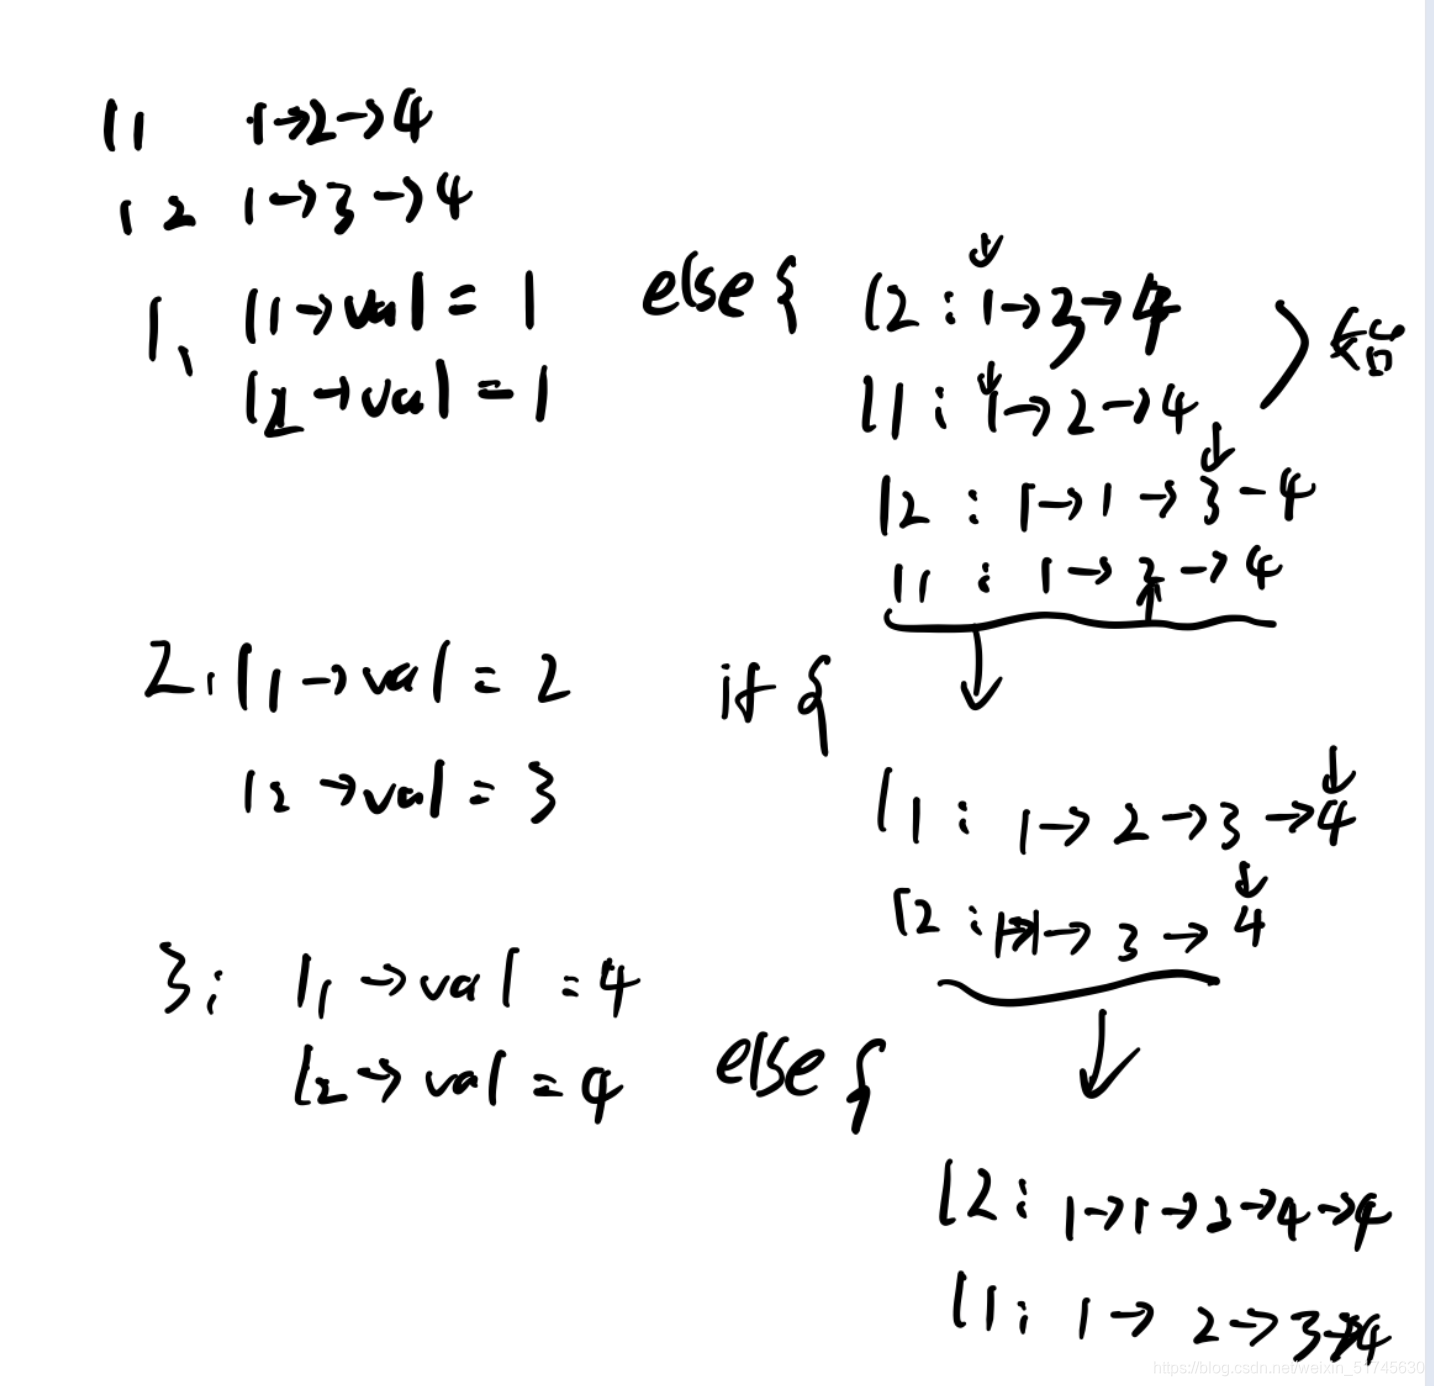 l1 1→2→4
l2 1→3→4
1、 l1→val = 1
l2→val = 1
else {
l2 : 1→3→4
l1 : 1→2→4
l2 : 1→1→3-4
l1 : 1→2→4
2. l1→val = 2
l2→val = 3
if {
l1 : 1→2→3→4
l2 : 1→3→4
3; l1→val = 4
l2→val = 4
else {
l2: 1→1→3→4→4
l1; 1→2→3→4
https://blog.csdn.net/weixin_51745630